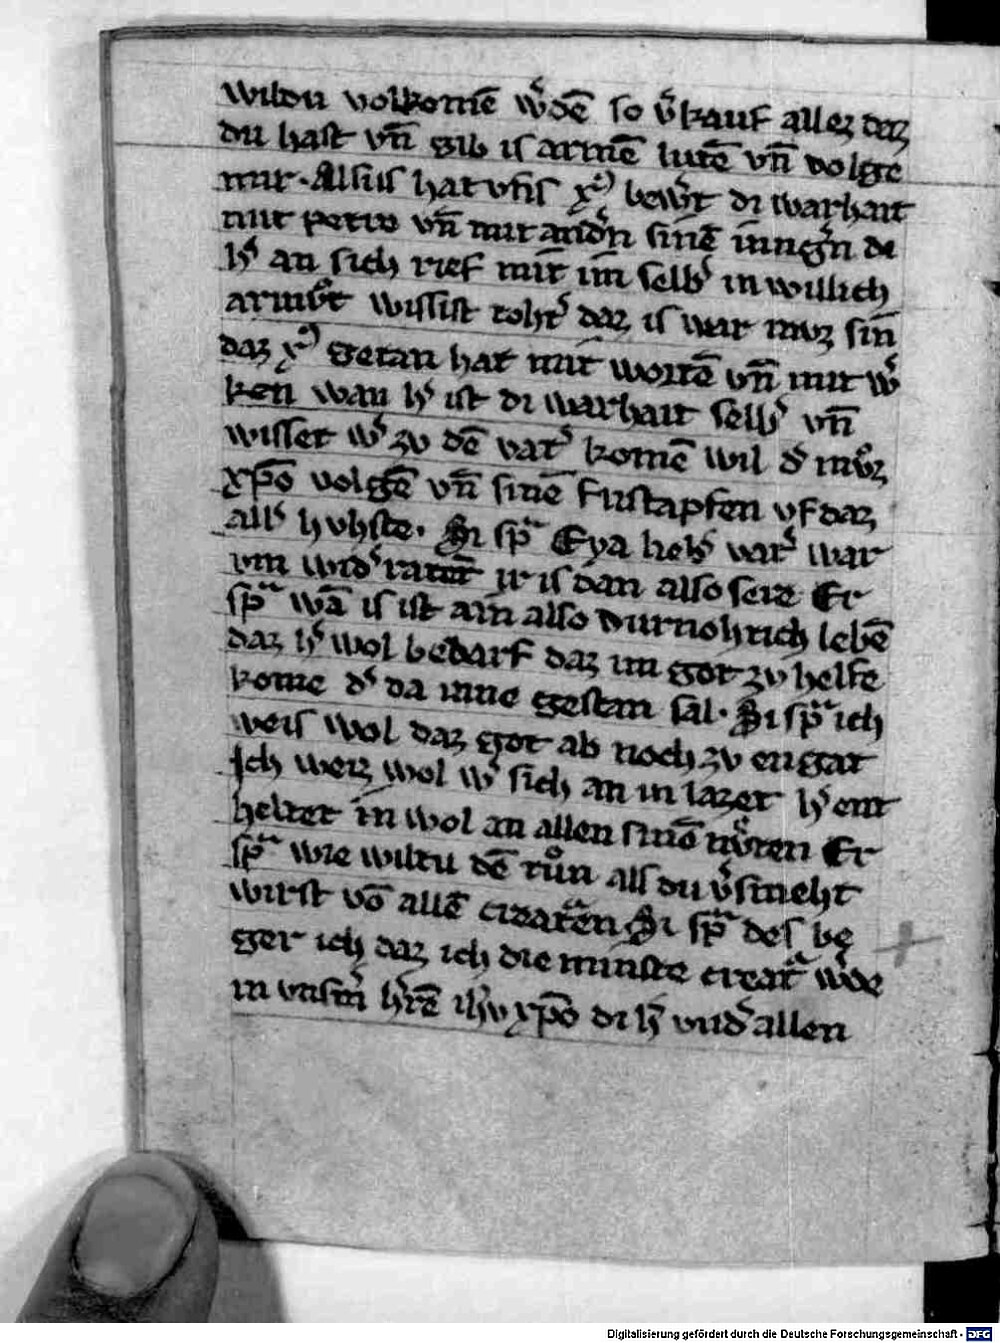 wildu volkomē w͛dē so v͛kauf allez daz
du hast vn̄ gib is armē lutē vn̄ volge
mir · Alsus hat vn̄s xᵖ bew͛t di warhait
mit petro vn̄ mit andn͛ sinē iungn͛ di
h͛ an sich rief mit im selb͛ in willich
armv̊t wissist toht͛ daz is war mvz sin
daz xᵖ getan hat mit wortē vn̄ mit w͛
ken wan h͛ ist di warhait selb͛ vn̄
wisset w͛ zv dē vat͛ komē wil d͛ mv̊z
xp̄o volgē vn̄ sinē fustapfen vf daz
all͛ hvhste · Si spᵃ Eya lieb͛ vat͛ war
vm wid͛ratit ir is dan also sere Er
spᵃ wā is ist ain also durnohtich lebē
daz h͛ wol bedarf daz im got zv helfe
kome d͛ da inne gestan sal · Si spᵃ ich
weis wol daz got ab noch zv en gat
Ich weiz wol w͛ sich an in lazet h͛ ent
heltet in wol an allen sinē nv̊ten Er
spᵃ wie wiltu dē tůn als du v͛smeht
wirst vō allē creatᵃen Si spᵃ des be
ger ich daz ich die minste creatᵃ w͛de
in vnsm͛ h͛rē ih̄v xp̄o di h͛ vnd͛ allen
Digitalisierung gefördert durch die Deutsche Forschungsgemeinschaft - DFG